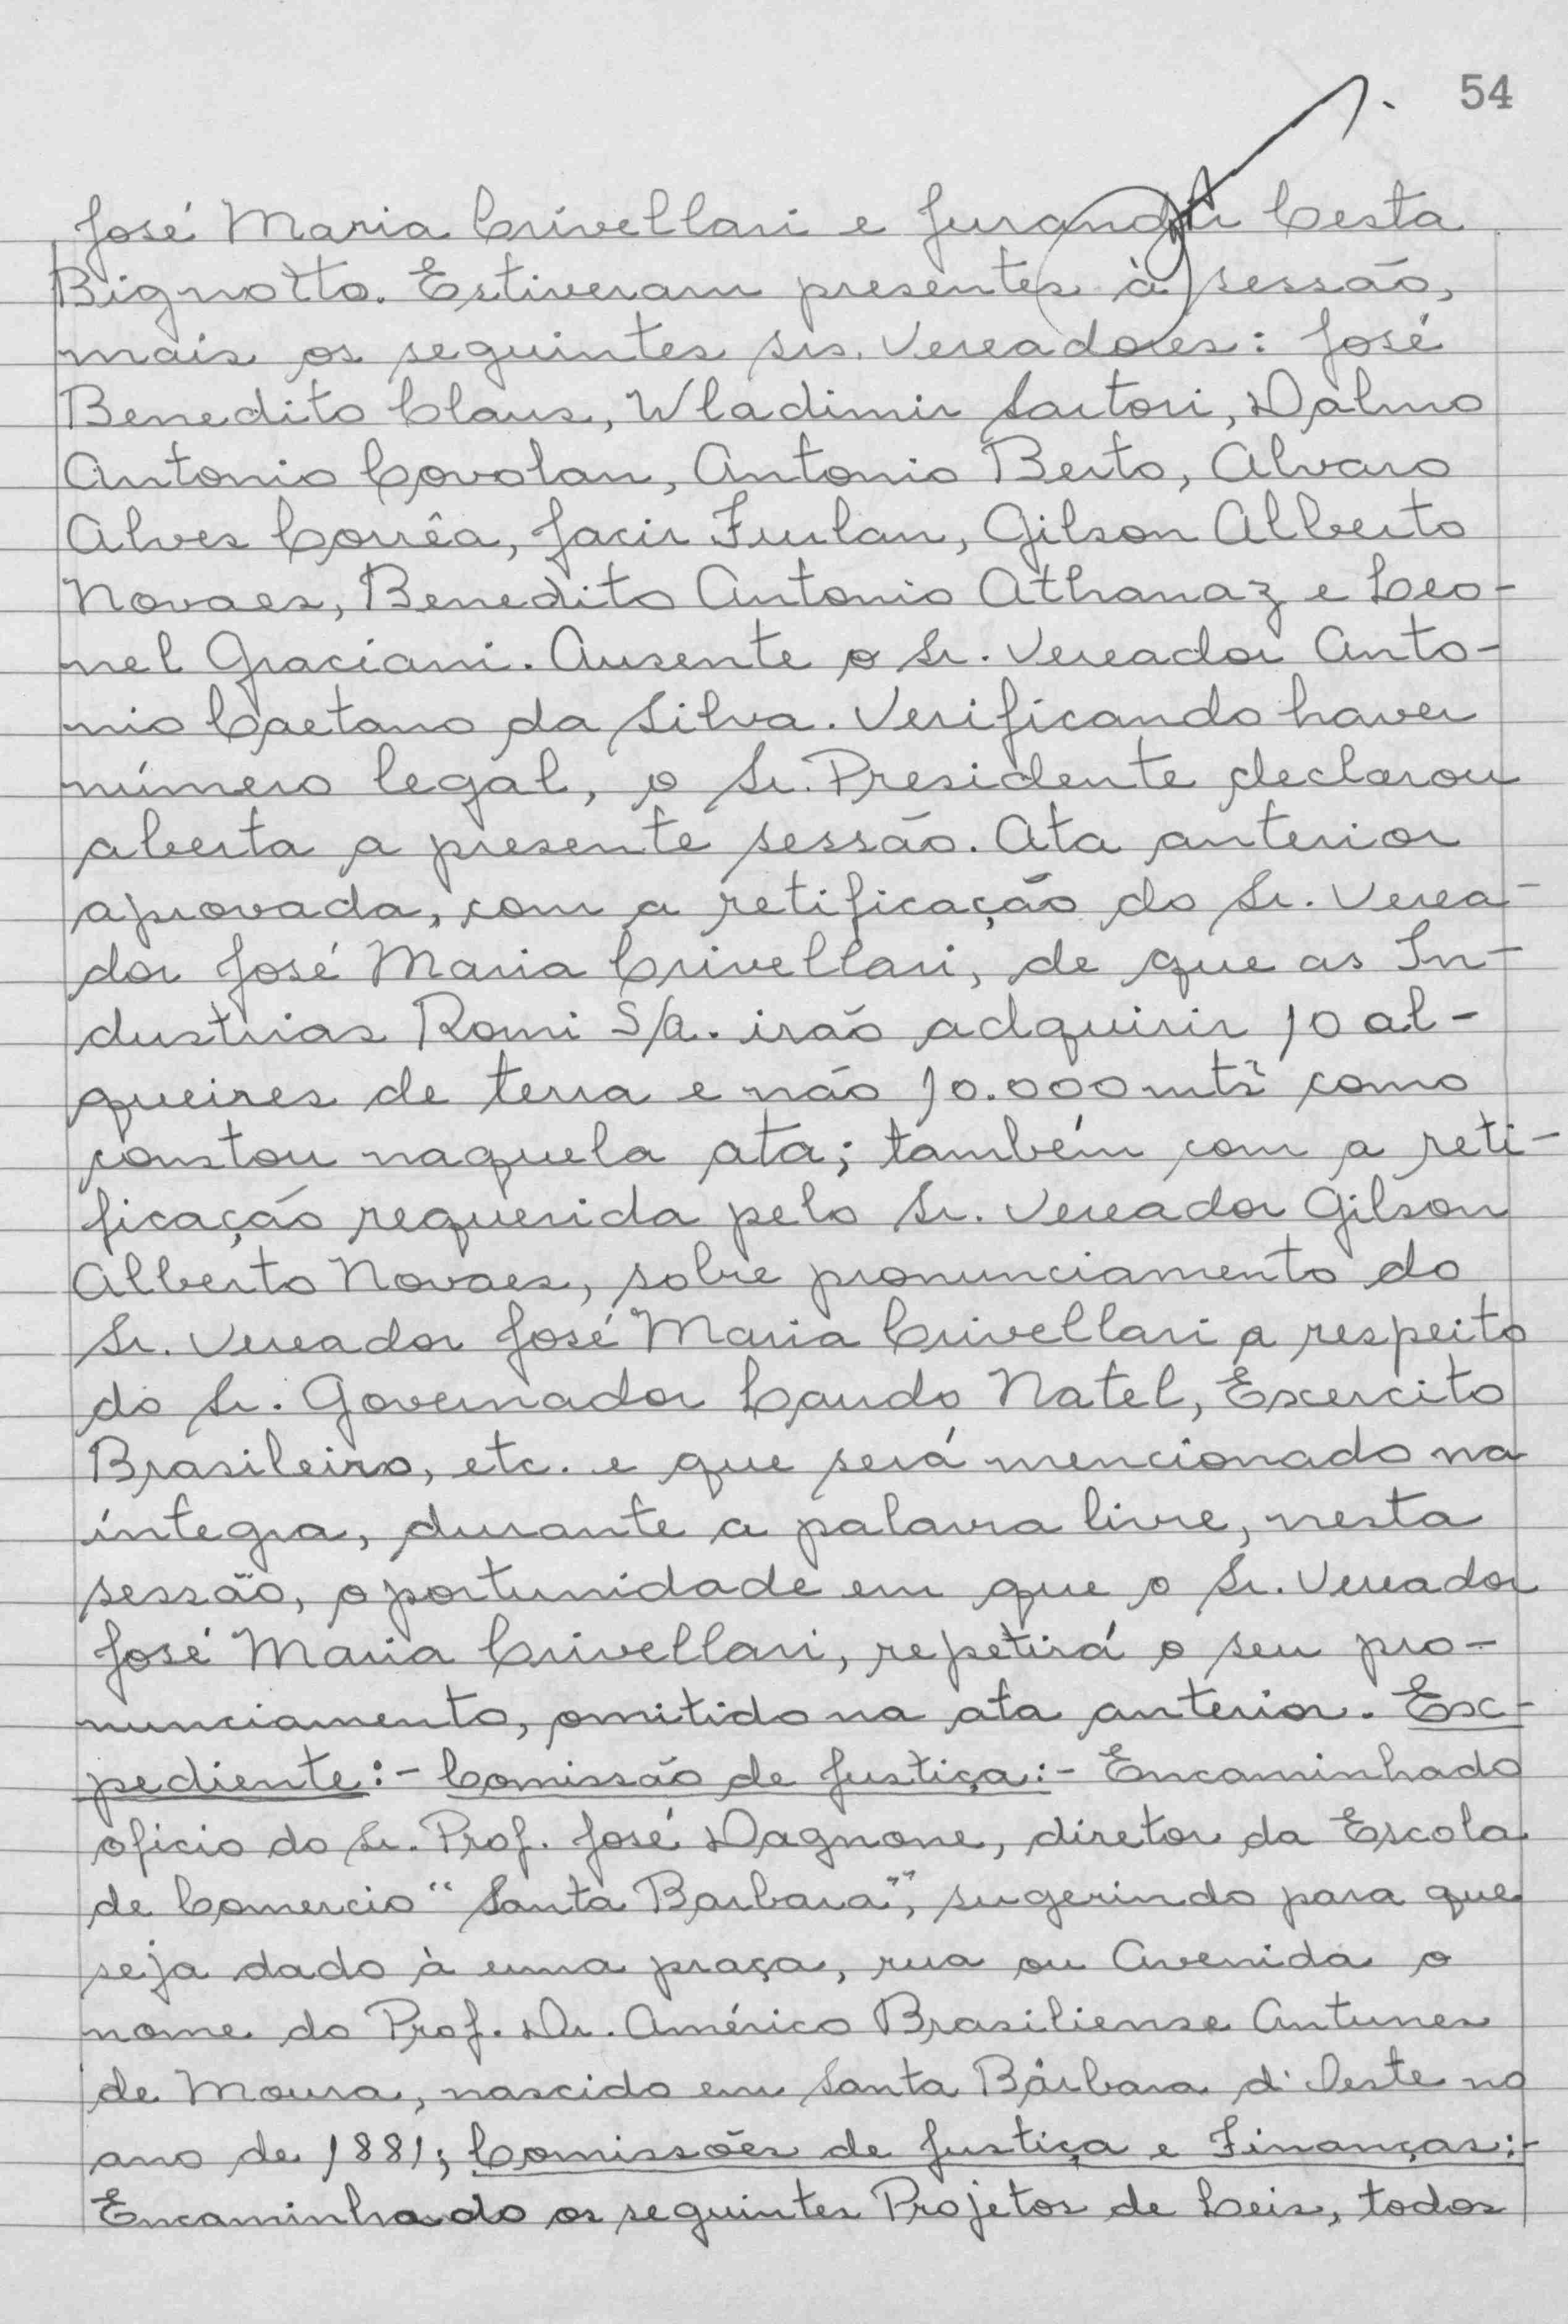 54
José Maria Crivellari e Jurandyr Cesta
Bignotto. Estiveram presentes à sessão,
mais os seguintes srs. Vereadores: José
Benedito Claus, Wladimir Sartori, Dalmo
Antonio Covolan, Antonio Berto, Alvaro
Alves Corrêa, Jacir Furlan, Gilson Alberto
Novaes, Benedito Antonio Athanaz e Leo-
nel Graciani. Ausente o Sr. Vereador Anto-
nio Caetano da Silva. Verificando haver
número legal, o Sr. Presidente declarou
aberta a presente sessão. Ata anterior
aprovada, com a retificação do Sr. Verea-
dor José Maria Crivellari, de que as In-
dustrias Romi S/A. irão adquirir 10 al-
queires de terra e não 10.000 mts² como
constou naquela ata; também com a reti-
ficação requerida pelo Sr. Vereador Gilson
Alberto Novaes, sobre pronunciamento do
Sr. Vereador José Maria Crivellari a respeito
do Sr. Governador Laudo Natel, Exercito
Brasileiro, etc. e que será mencionado na
íntegra, durante a palavra livre, nesta
sessão, oportunidade em que o Sr. Vereador
José Maria Crivellari, repetirá o seu pro-
nunciamento, omitido na ata anterior. Ex-
pediente:- Comissão de Justiça:- Encaminhado
oficio do Sr. Prof. José Dagnone, diretor da Escola
de Comercio "Santa Barbara", sugerindo para que
seja dado à uma praça, rua ou Avenida o
nome do Prof. Dr. Américo Brasiliense Antunes
de Moura, nascido em Santa Bárbara d'Oeste no
ano de 1881; Comissões de Justiça e Finanças:-
Encaminhado os seguintes Projetos de Leis, todos